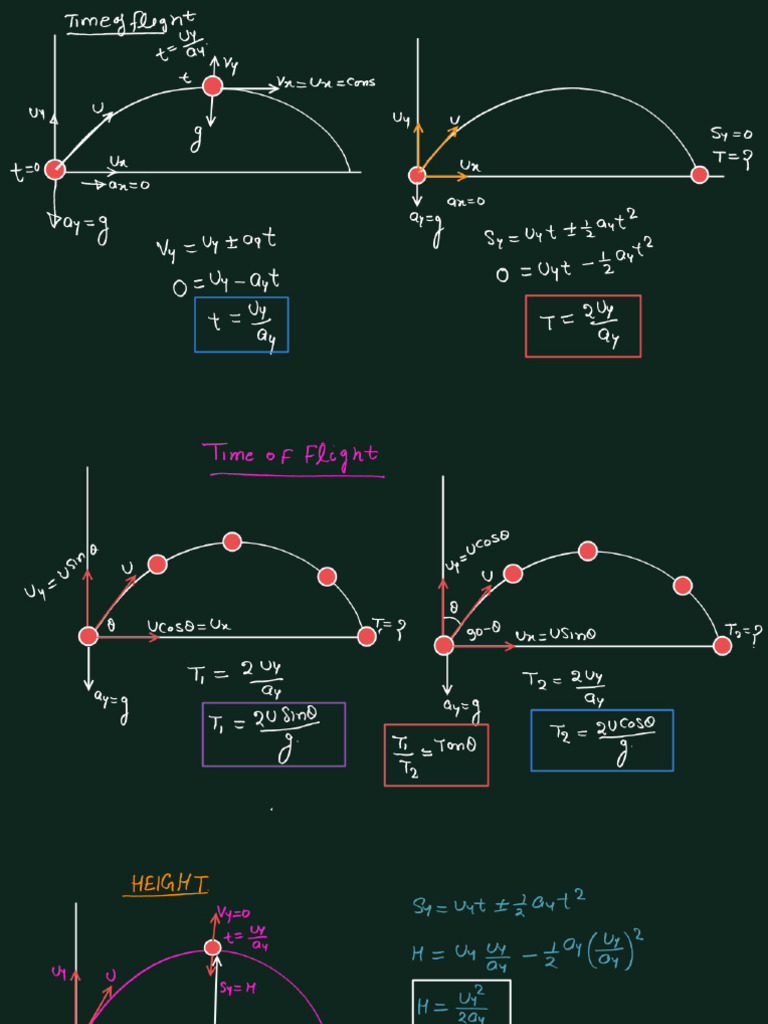 Time of flight
t = uy/ay
Vy
t
Vx = Ux = cons
Uy
U
g
t=0
Ux
ax=0
ay=g
Vy = Uy ± ayt
0 = Uy − ayt
t = Uy/ay
Uy
U
Ux
Sy=0
T=?
ax=0
ay=g
Sy = Uyt ± 1/2 ayt²
0 = Uyt − 1/2 ayt²
T = 2Uy/ay
Time of Flight
Uy = Usinθ
U
θ
Ucosθ = Ux
T₁=?
ay=g
T₁ = 2Uy/ay
T₁ = 2USinθ/g
Uy=Ucosθ
U
θ
90-θ
Ux=USinθ
T₂=?
ay=g
T₂ = 2Uy/ay
T₂ = 2Ucosθ/g
T₁/T₂ = Tanθ
HEIGHT
Vy=0
t = Uy/ay
Uy
U
Sy=H
Sy = Uyt ± 1/2 ayt²
H = Uy Uy/ay − 1/2 ay(Uy/ay)²
H = Uy²/2ay